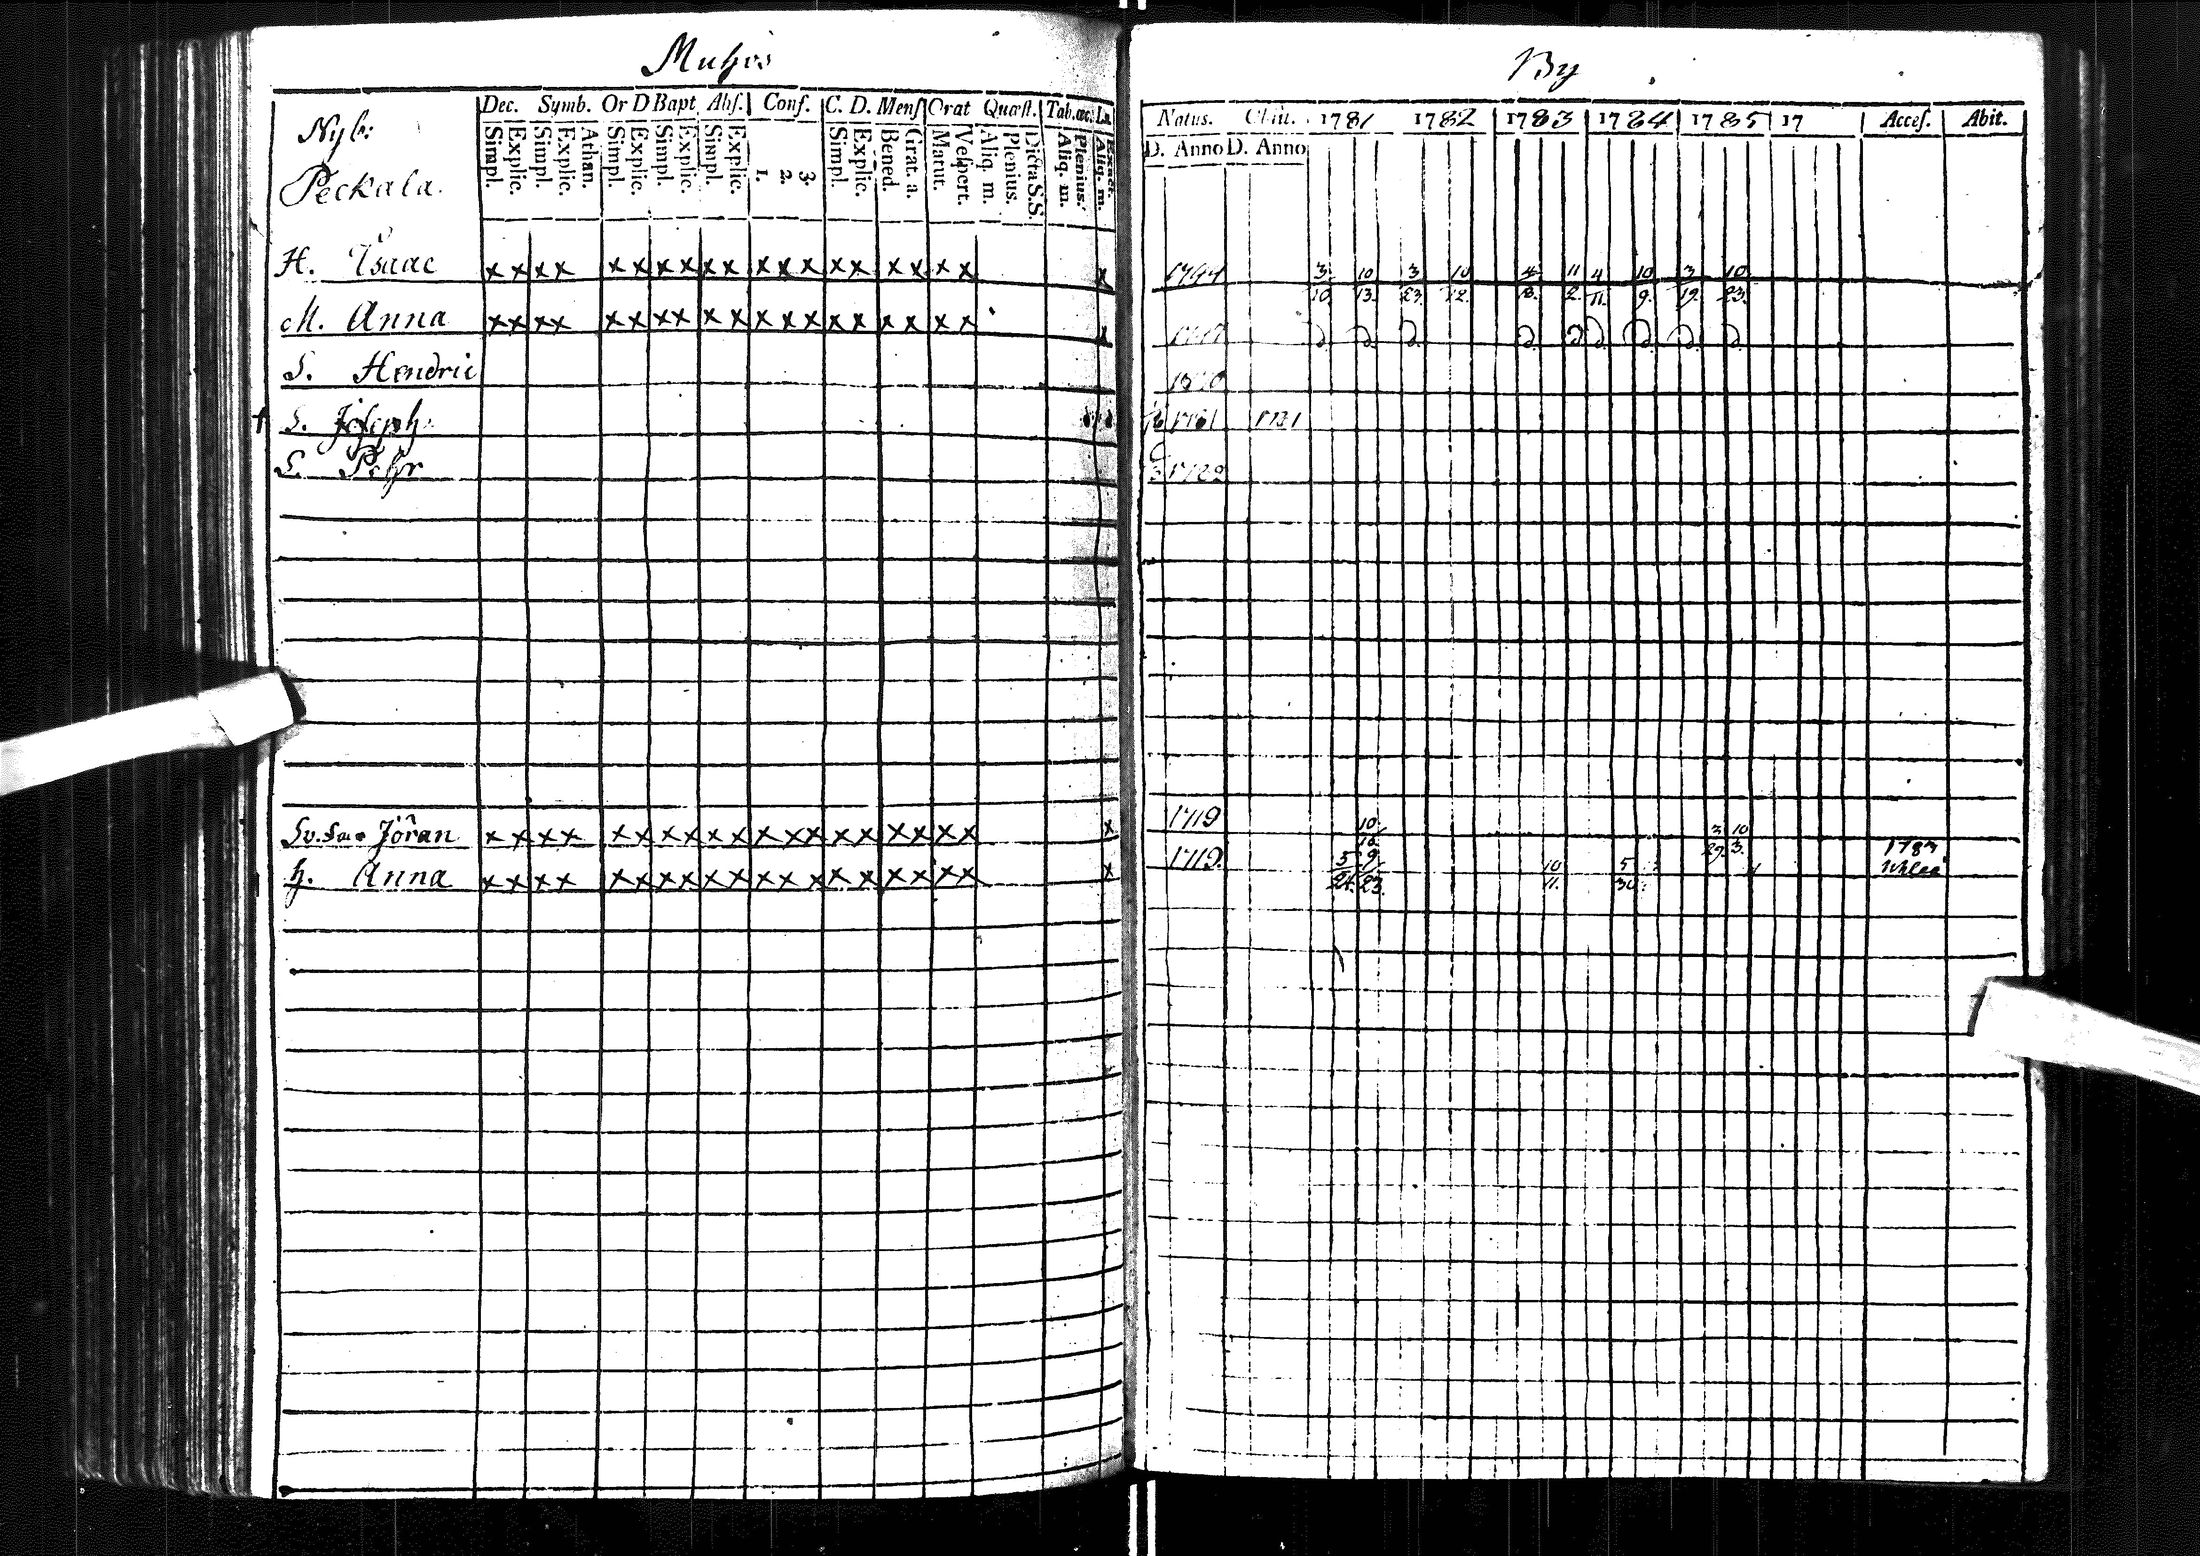 Muhos By
Dec. Symb. Or D Bapt Abs. Conf. C. D. Mens Orat Quæst. Tab.œc. Natus. Obiit. 1781 1782 1783 1784 1785 17 Acces. Abit.
Simpl. Explic. Simpl. Explic. Athan. Simpl. Explic. Simpl. Explic. Simpl. Explic. 1. 2. 3. Simpl. Explic. Bened. Grat. a. Matut. Vespert. Aliq. m. Plenius. Dicta S.S. Aliq. m. Plenius. Aliq. m. Exact. D. Anno D. Anno
Nyb:
Peckala.
H. Isaac x x x x x x x x x x x x x x x x x x x x 1744 3/10. 10/13. 3/23. 10/12. 4/13. 11/2. 4/11. 10/9. 3/19. 10/23.
M. Anna x x x x x x x x x x x x x x x x x x x x D. D. D. D. D. D. D. D. D.
S. Hendric
† S. Joseph 1781 1781
S. Pehr
Sv. Jöran x x x x x x x x x x x x x x x x x x x x 1719 10/10. 3/29. 10/3.
h. Anna x x x x x x x x x x x x x x x x x x x x 1719. 5/24. 9/23. 10/11. 5/30. 1783